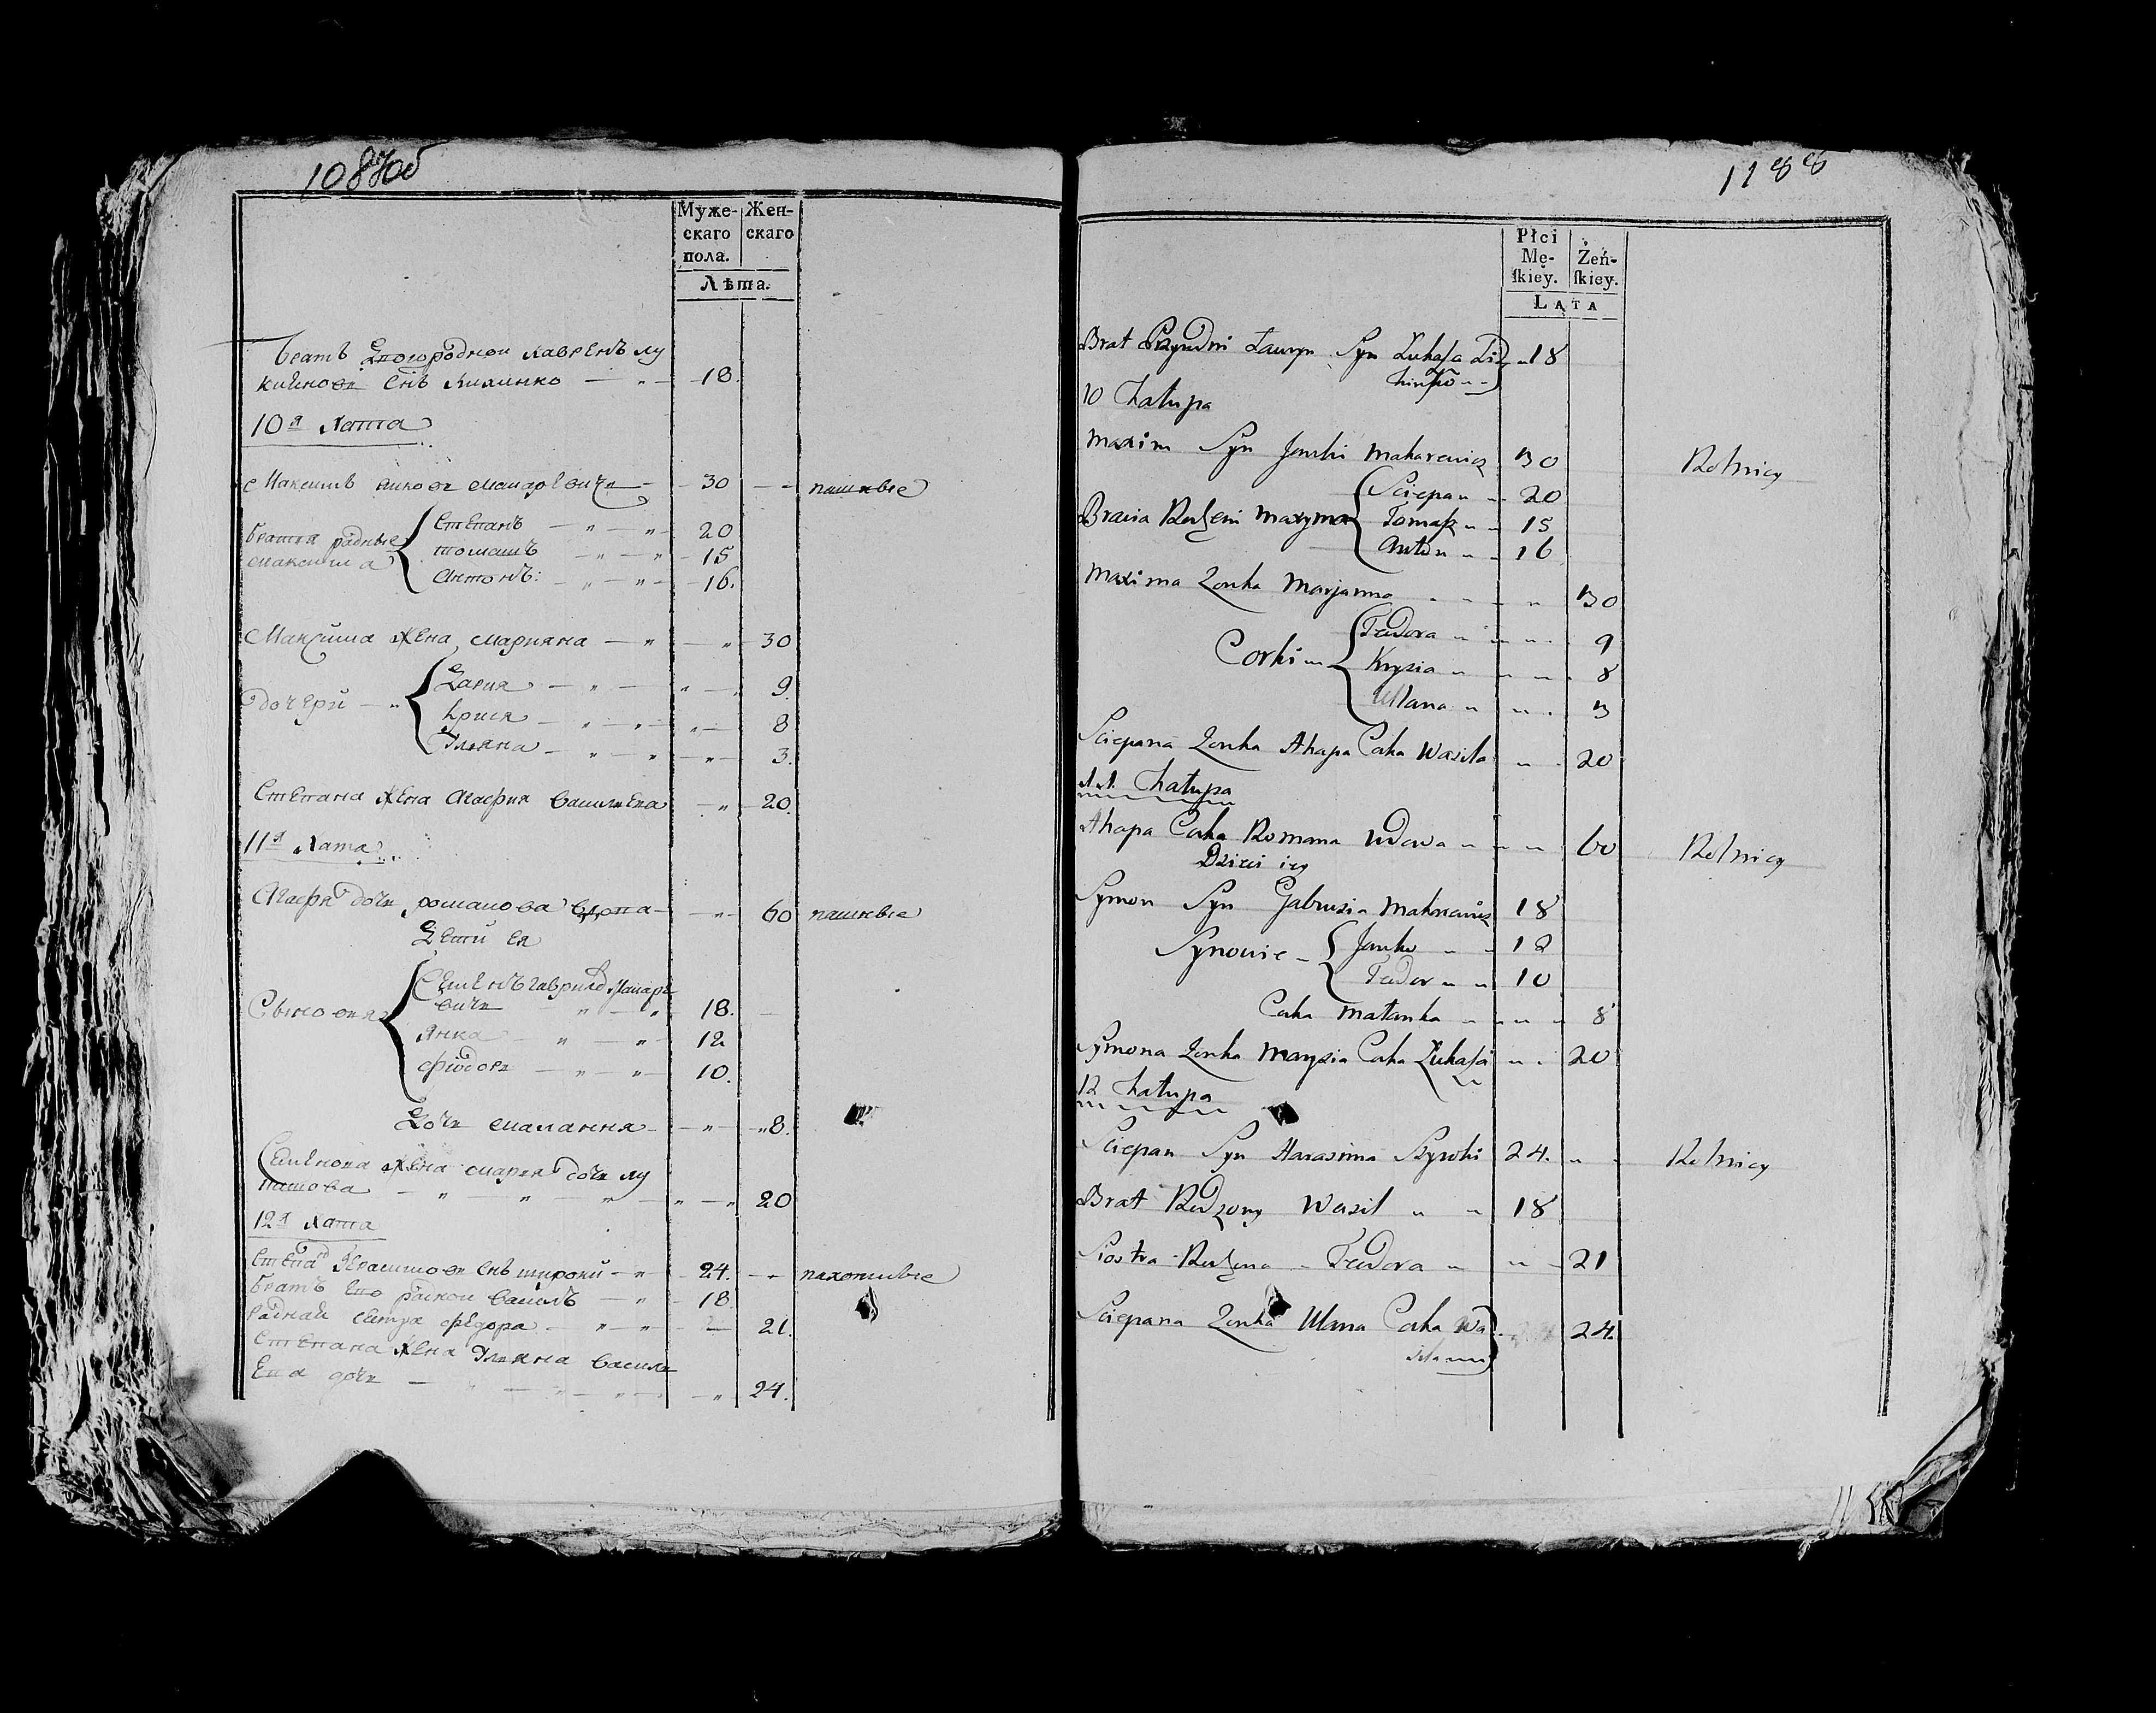 1087об
Муже-
скаго
пола.
Жен-
скаго
Лѣта.
Братъ лавренъ лу
снъ 18.
10я хата
Максимъ янковъ макаревичъ 30 пашные
братья родные
максима
степанъ 20
томашъ 15
антонъ: 16.
Максима жена марияна 30
дочери
9.
крися 8
Улияна 3.
степана жена Агафия василева 20.
11я хата
Агафия дочь романова вдова 60 пашные
Дети ея
Сыновья
Семенъ гаврилов макаре
вичъ 18.
янка 12
фиодоръ 10.
Дочь маланния 8.
Семенова жена мария дочь лу
кашова 20
12я хата
степан герасимовъ снъ широкий 24. пахотные
братъ его родной василъ 18
родная сестра федора 21.
степана жена Улияна василе
ва дочь 24.
1188
Płci
Mę-
ſkiey.
Żeń-
ſkiey.
LATA
Brat Lauryn Syn Łukasza 18
10 Chałupa
Maxim Syn Janki Makarewicz 30 Rolnicy
Bracia Rodzeni Maxyma
Sciepan 20
Tomasz 15
Anton 16
Maxima Zonka Marjanna 30
Corki
Teodora 9
Krysia 8
Ullana 3
Sciepana Zonka Ahapa Corka Wasila 20
11. Chałupa
Ahapa Corka Romana Wdowa 60 Rolnicy
Dzieci iey
Symon Syn Gabrusia Makarewicz 18
Synowie
Janko 12
Teodor 10
Corka Małanka 8
Symona Zonka Marysia Corka Łukasza 20
12 Chałupa
Sciepan Syn Harasima Szyroki 24. Rolnicy
Brat Rodzony Wasil 18
Siostra Rodzona Teodora 21
Sciepana Zonka Ulana Corka Wa 24.